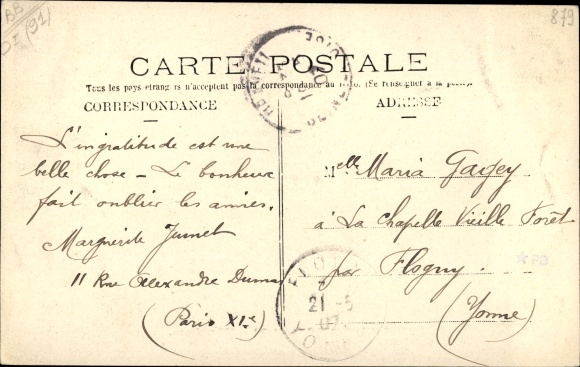 BB
DE (91)
879
CARTE POSTALE
Tous les pays étrangers n'acceptent pas la correspondance au (Se renseigner à la poste).
CORRESPONDANCE
ADRESSE
L'ingratitude est une
belle chose – Le bonheur
fait oublier les amies.
Marguerite Jumel
11 Rue Alexandre Dumas
(Paris XIe)
Melle Maria
à La Chapelle Vieille Forêt
par Flogny.
(Yonne)
FLOGNY
21 -5
07
YONNE